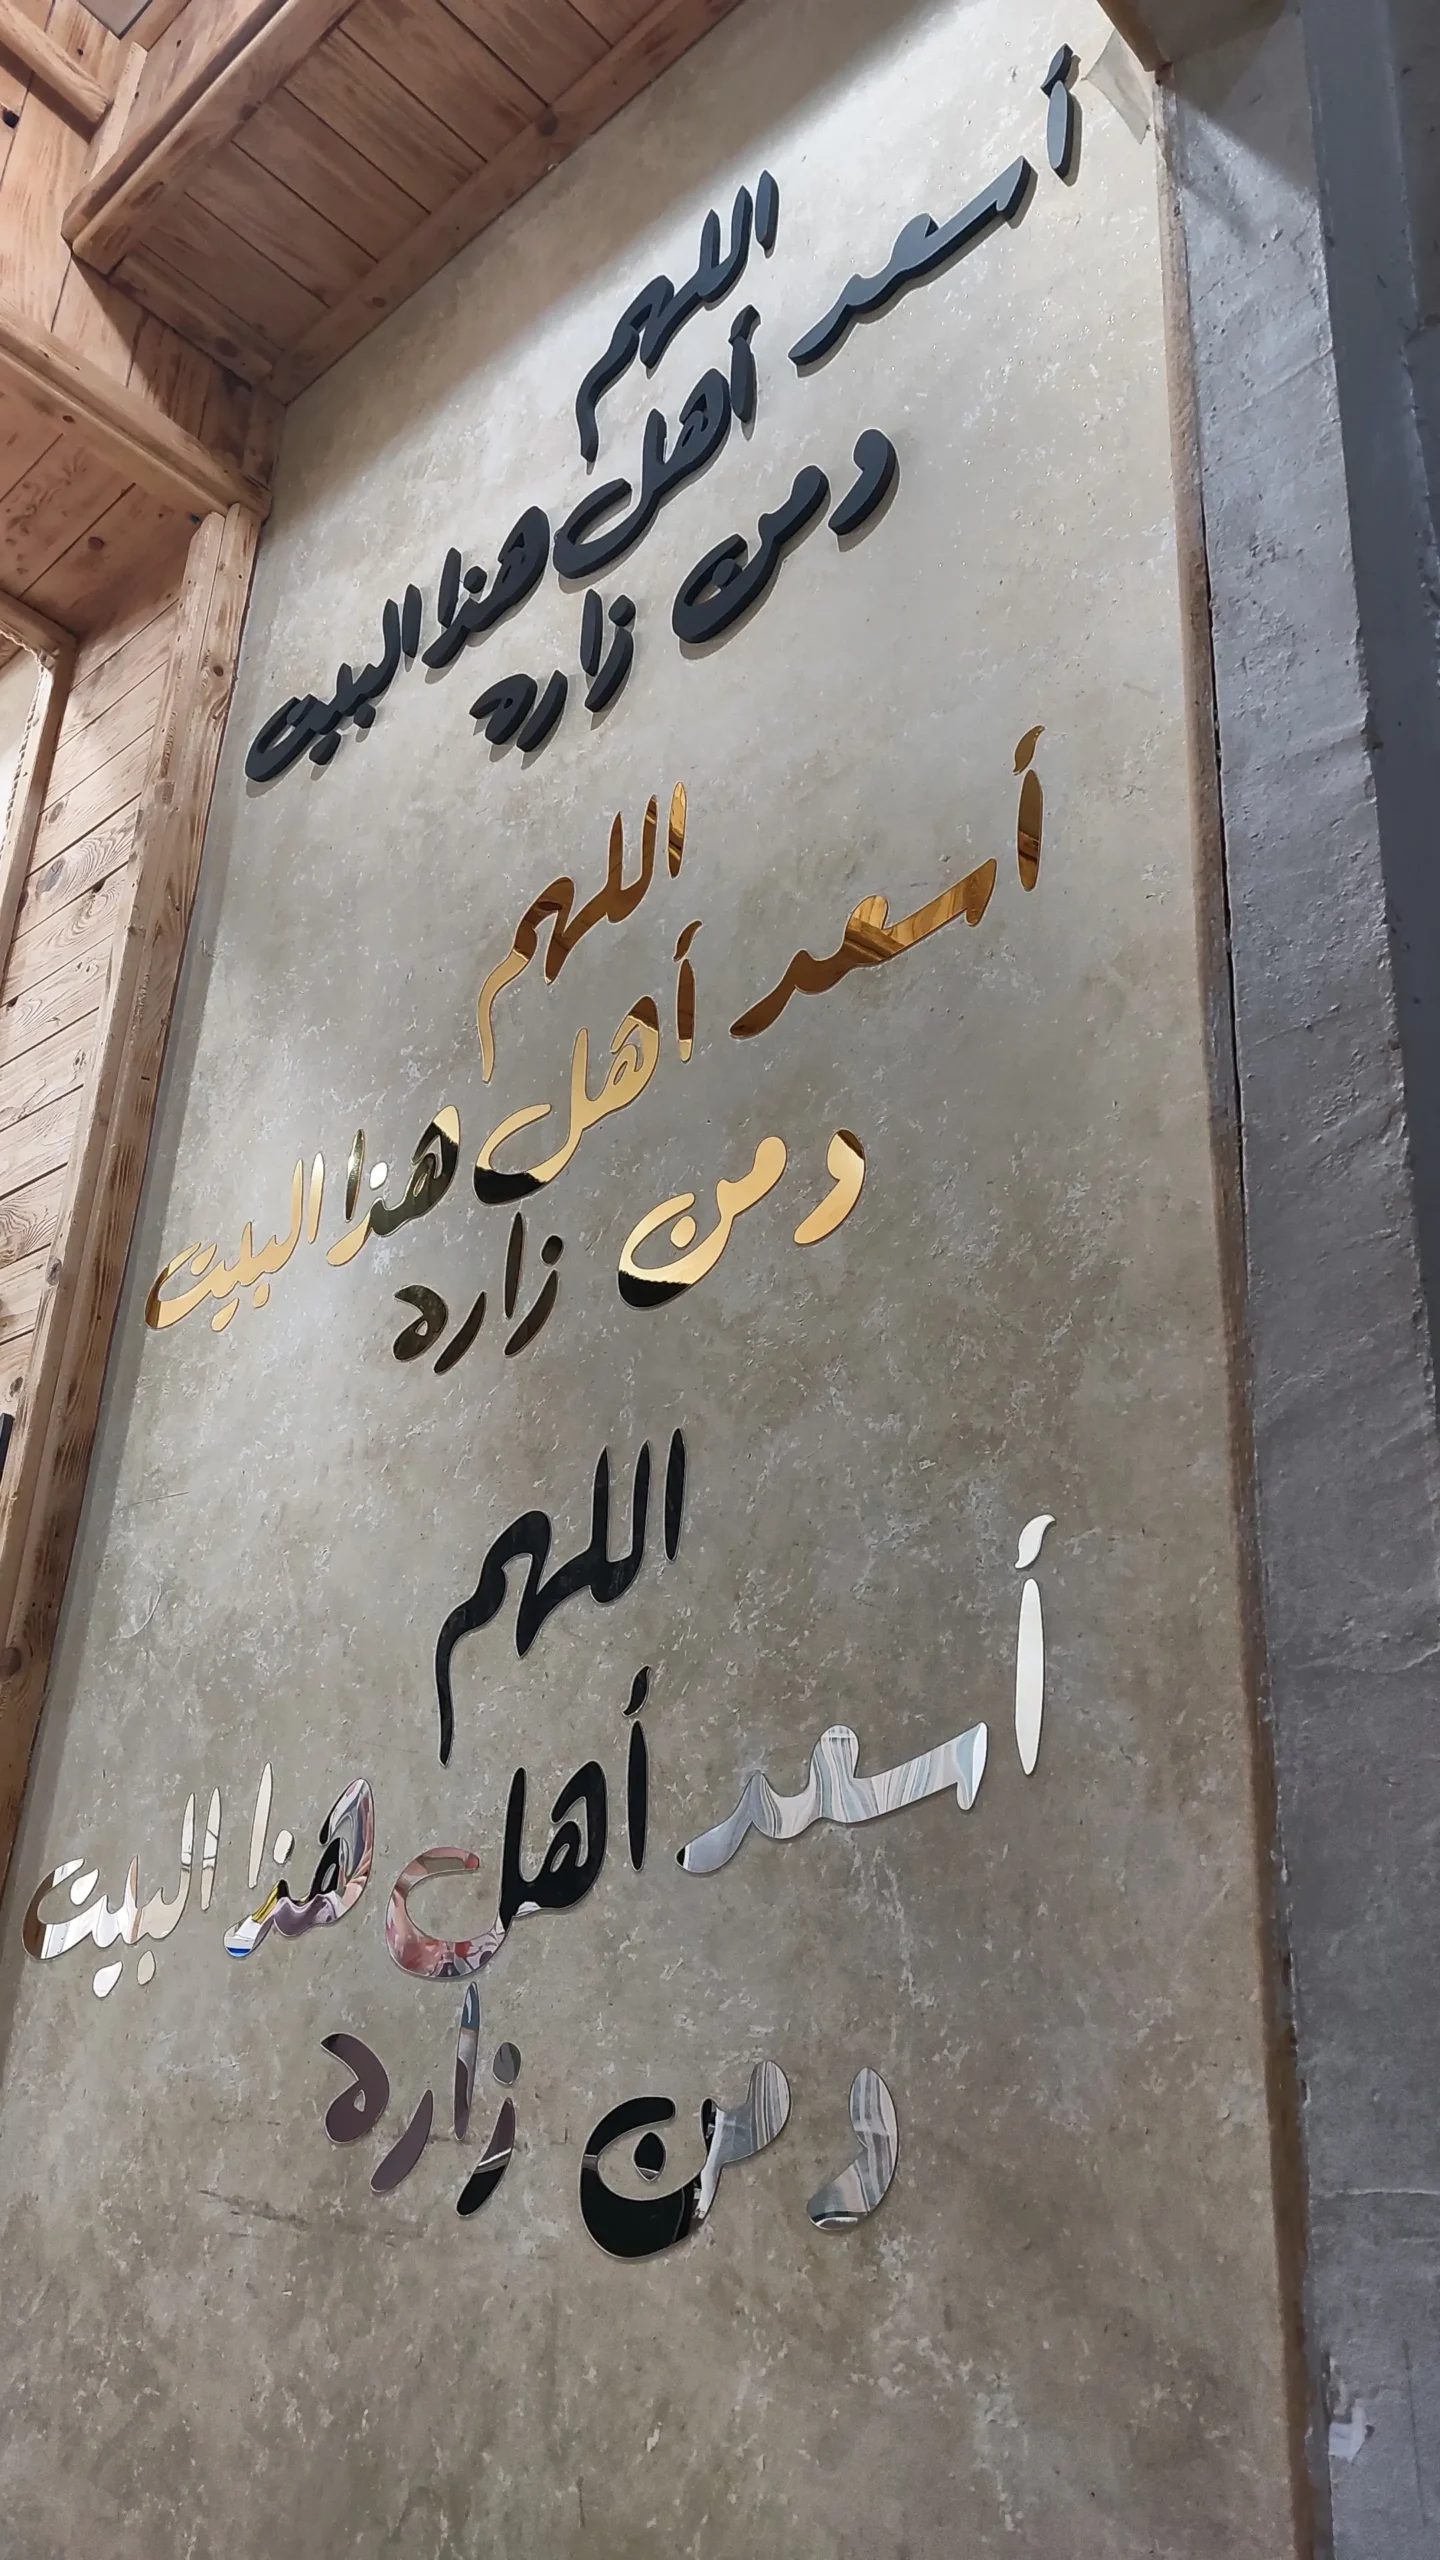 اللهم
أسعد أهل هذا البيت
ومن زاره
اللهم
أسعد أهل هذا البيت
ومن زاره
اللهم
أسعد أهل هذا البيت
ومن زاره